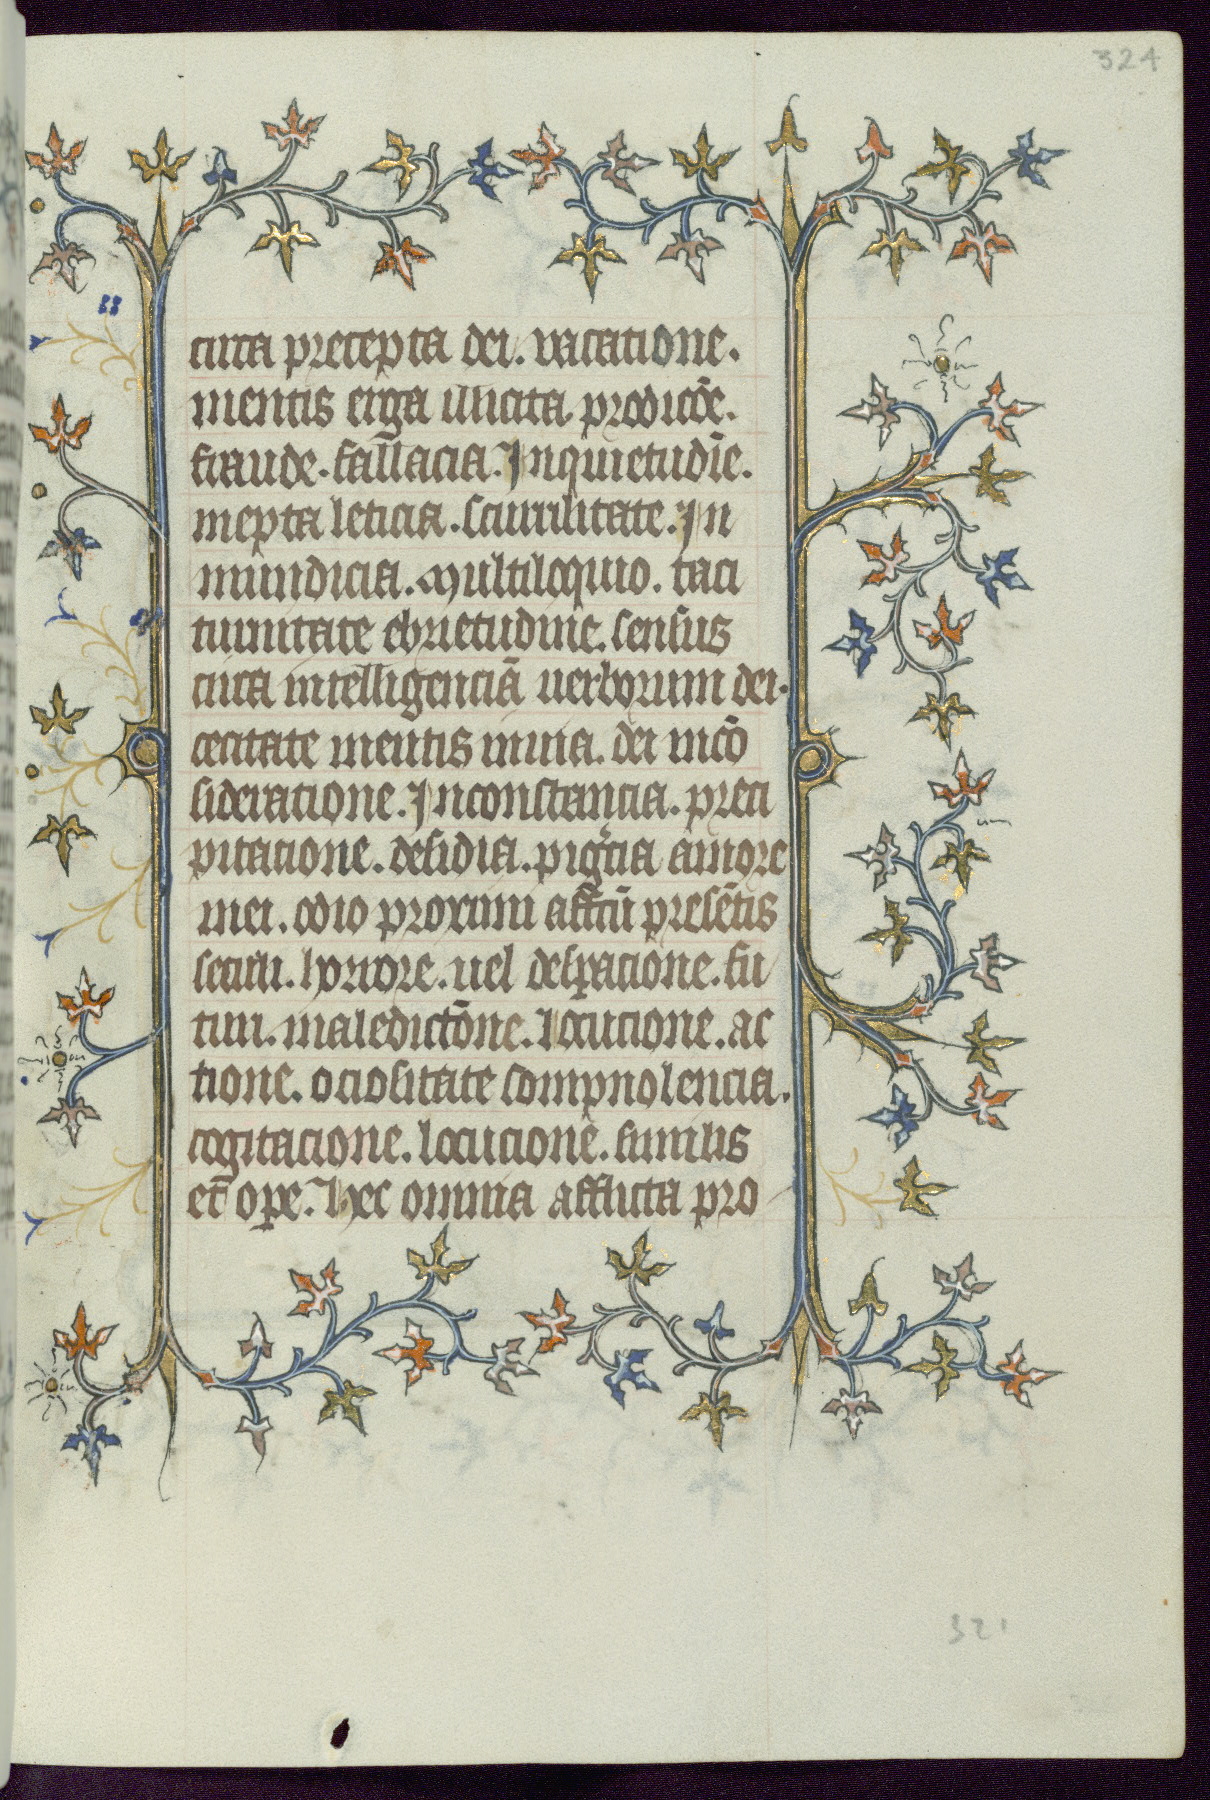 324
circa precepta dei. vacatione.
mentis erga illicita. prodicõe.
fraude. fallacia. Inquietudĩe.
inepta leticia. scurrilitate. In
mundicia. Multiloquio. taci
turnitate ebrietudine. sensus
circa intelligenciã uerborum dei.
cecitate mentis nimia. dei incõ
sideratione. Inconstancia. preci
pitatione. desidia. pigcia amore
mei. odio proximi affctũ presẽtis
seculi. horrore. uel desꝑatione. fu
turi. maledictõne. Locucione. ac
tione. ociositate sompnolencia.
cogitacione. locucione. similis
et oꝑe. Hec omnia afflicta pro
321